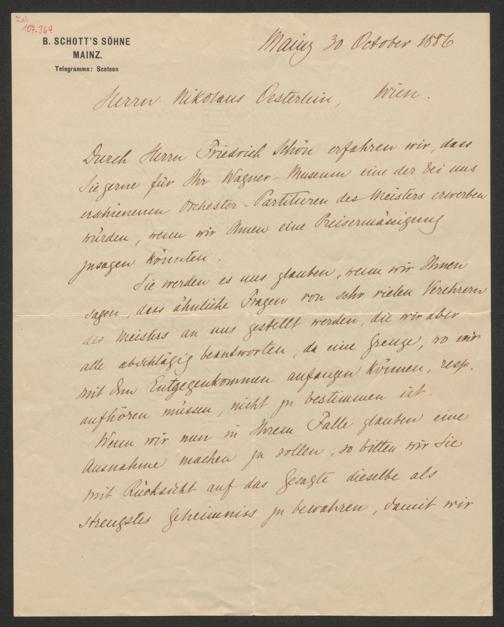 107.369
B. SCHOTT'S SÖHNE
MAINZ.
Telegramme: Scotson
Mainz 30 October 1886
Herrn Nikolaus Oesterlein, Wien.
Durch Herrn Friedrich Schön erfahren wir, dass
Sie gerne für Ihr Wagner-Museum eine der bei uns
erschienenen Orchester-Partituren des Meisters erwerben
würden, wenn wir Ihnen eine Preisermässigung
zusagen könnten.
Sie werden es uns glauben, wenn wir Ihnen
sagen, dass ähnliche Fragen von sehr vielen Verehrern
des Meisters an uns gestellt werden, die wir aber
alle abschlägig beantworten, da eine Grenze, wo wir
mit dem Entgegenkommen anfangen können, resp.
aufhören müssen, nicht zu bestimmen ist.
Wenn wir nun in Ihrem Falle glauben eine
Ausnahme machen zu sollen, so bitten wir Sie
mit Rücksicht auf das Gesagte dieselbe als
strengstes Geheimniss zu bewahren, damit wir